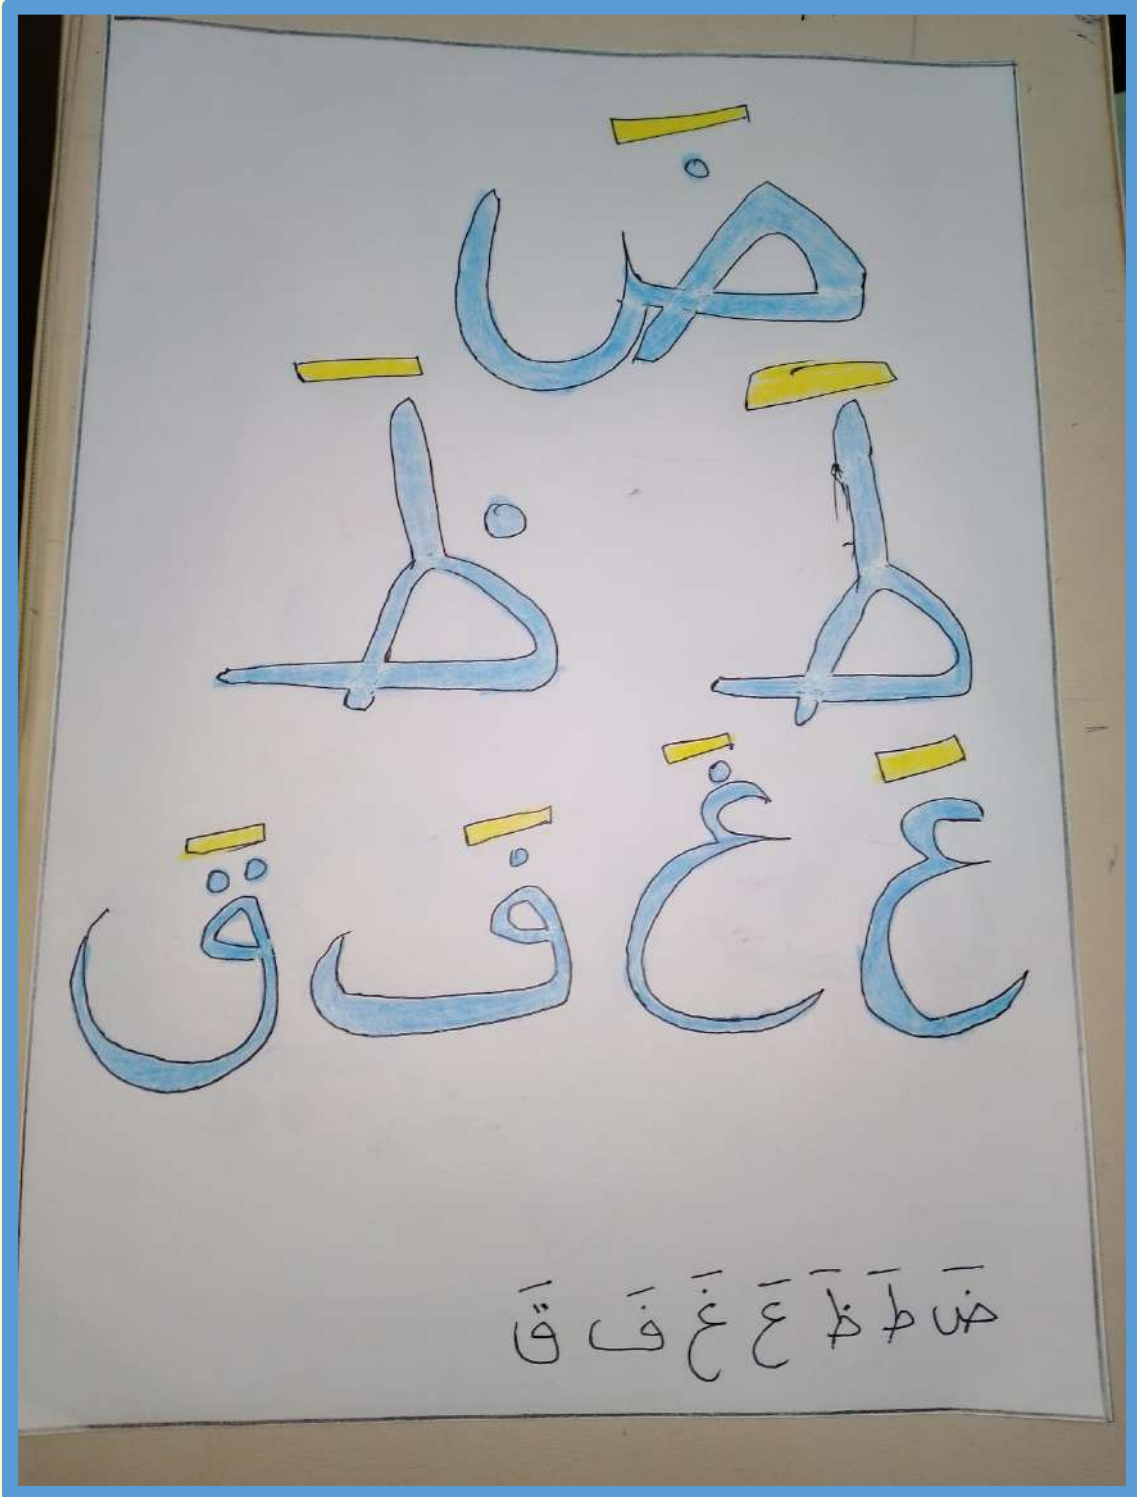 ضَ
طَ ظَ
عَ غَ فَ قَ
ضَ طَ ظَ عَ غَ فَ قَ